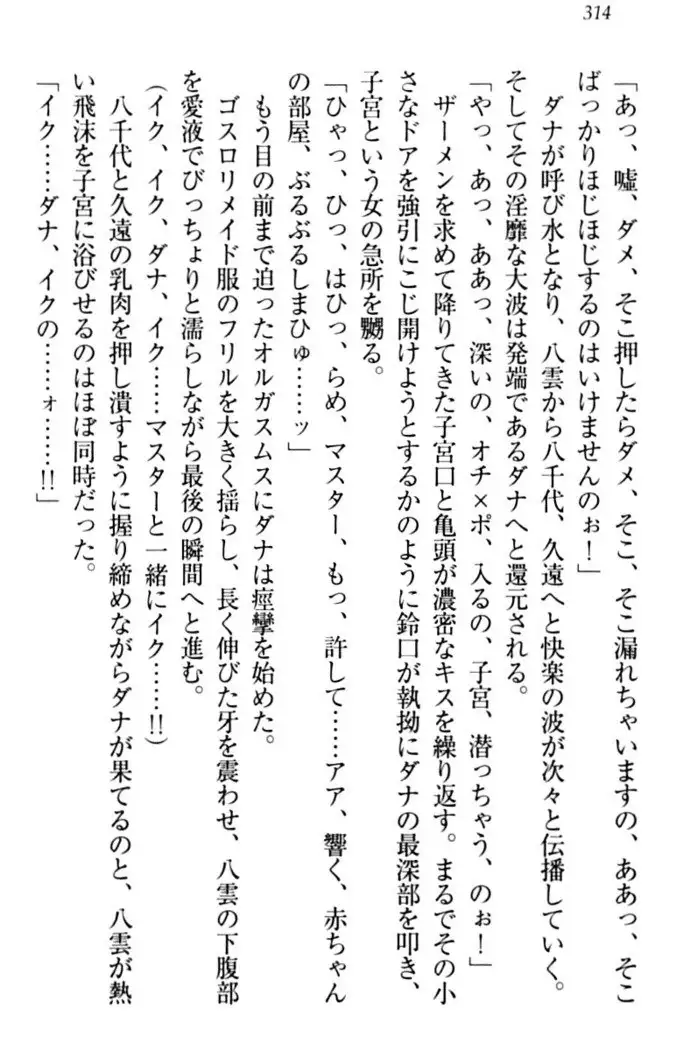 314
「あっ、嘘、ダメ、そこ押したらダメ、そこ、そこ漏れちゃいますの、ああっ、そこ
ばっかりほじほじするのはいけませんのぉ！」
ダナが呼び水となり、八雲から八千代、久遠へと快楽の波が次々と伝播していく。
そしてその淫靡な大波は発端であるダナへと還元される。
「やっ、あっ、ああっ、深いの、オチ×ポ、入るの、子宮、潜っちゃう、のぉ！」
ザーメンを求めて降りてきた子宮口と亀頭が濃密なキスを繰り返す。まるでその小
さなドアを強引にこじ開けようとするかのように鈴口が執拗にダナの最深部を叩き、
子宮という女の急所を嬲る。
「ひゃっ、ひっ、はひっ、らめ、マスター、もっ、許して……アア、響く、赤ちゃん
の部屋、ぶるぶるしまひゅ……ッ」
もう目の前まで迫ったオルガスムスにダナは痙攣を始めた。
ゴスロリメイド服のフリルを大きく揺らし、長く伸びた牙を震わせ、八雲の下腹部
を愛液でびっちょりと濡らしながら最後の瞬間へと進む。
（イク、イク、ダナ、イク……マスターと一緒にイク……!!）
八千代と久遠の乳肉を押し潰すように握り締めながらダナが果てるのと、八雲が熱
い飛沫を子宮に浴びせるのはほぼ同時だった。
「イク……ダナ、イクの……ォ……!!」